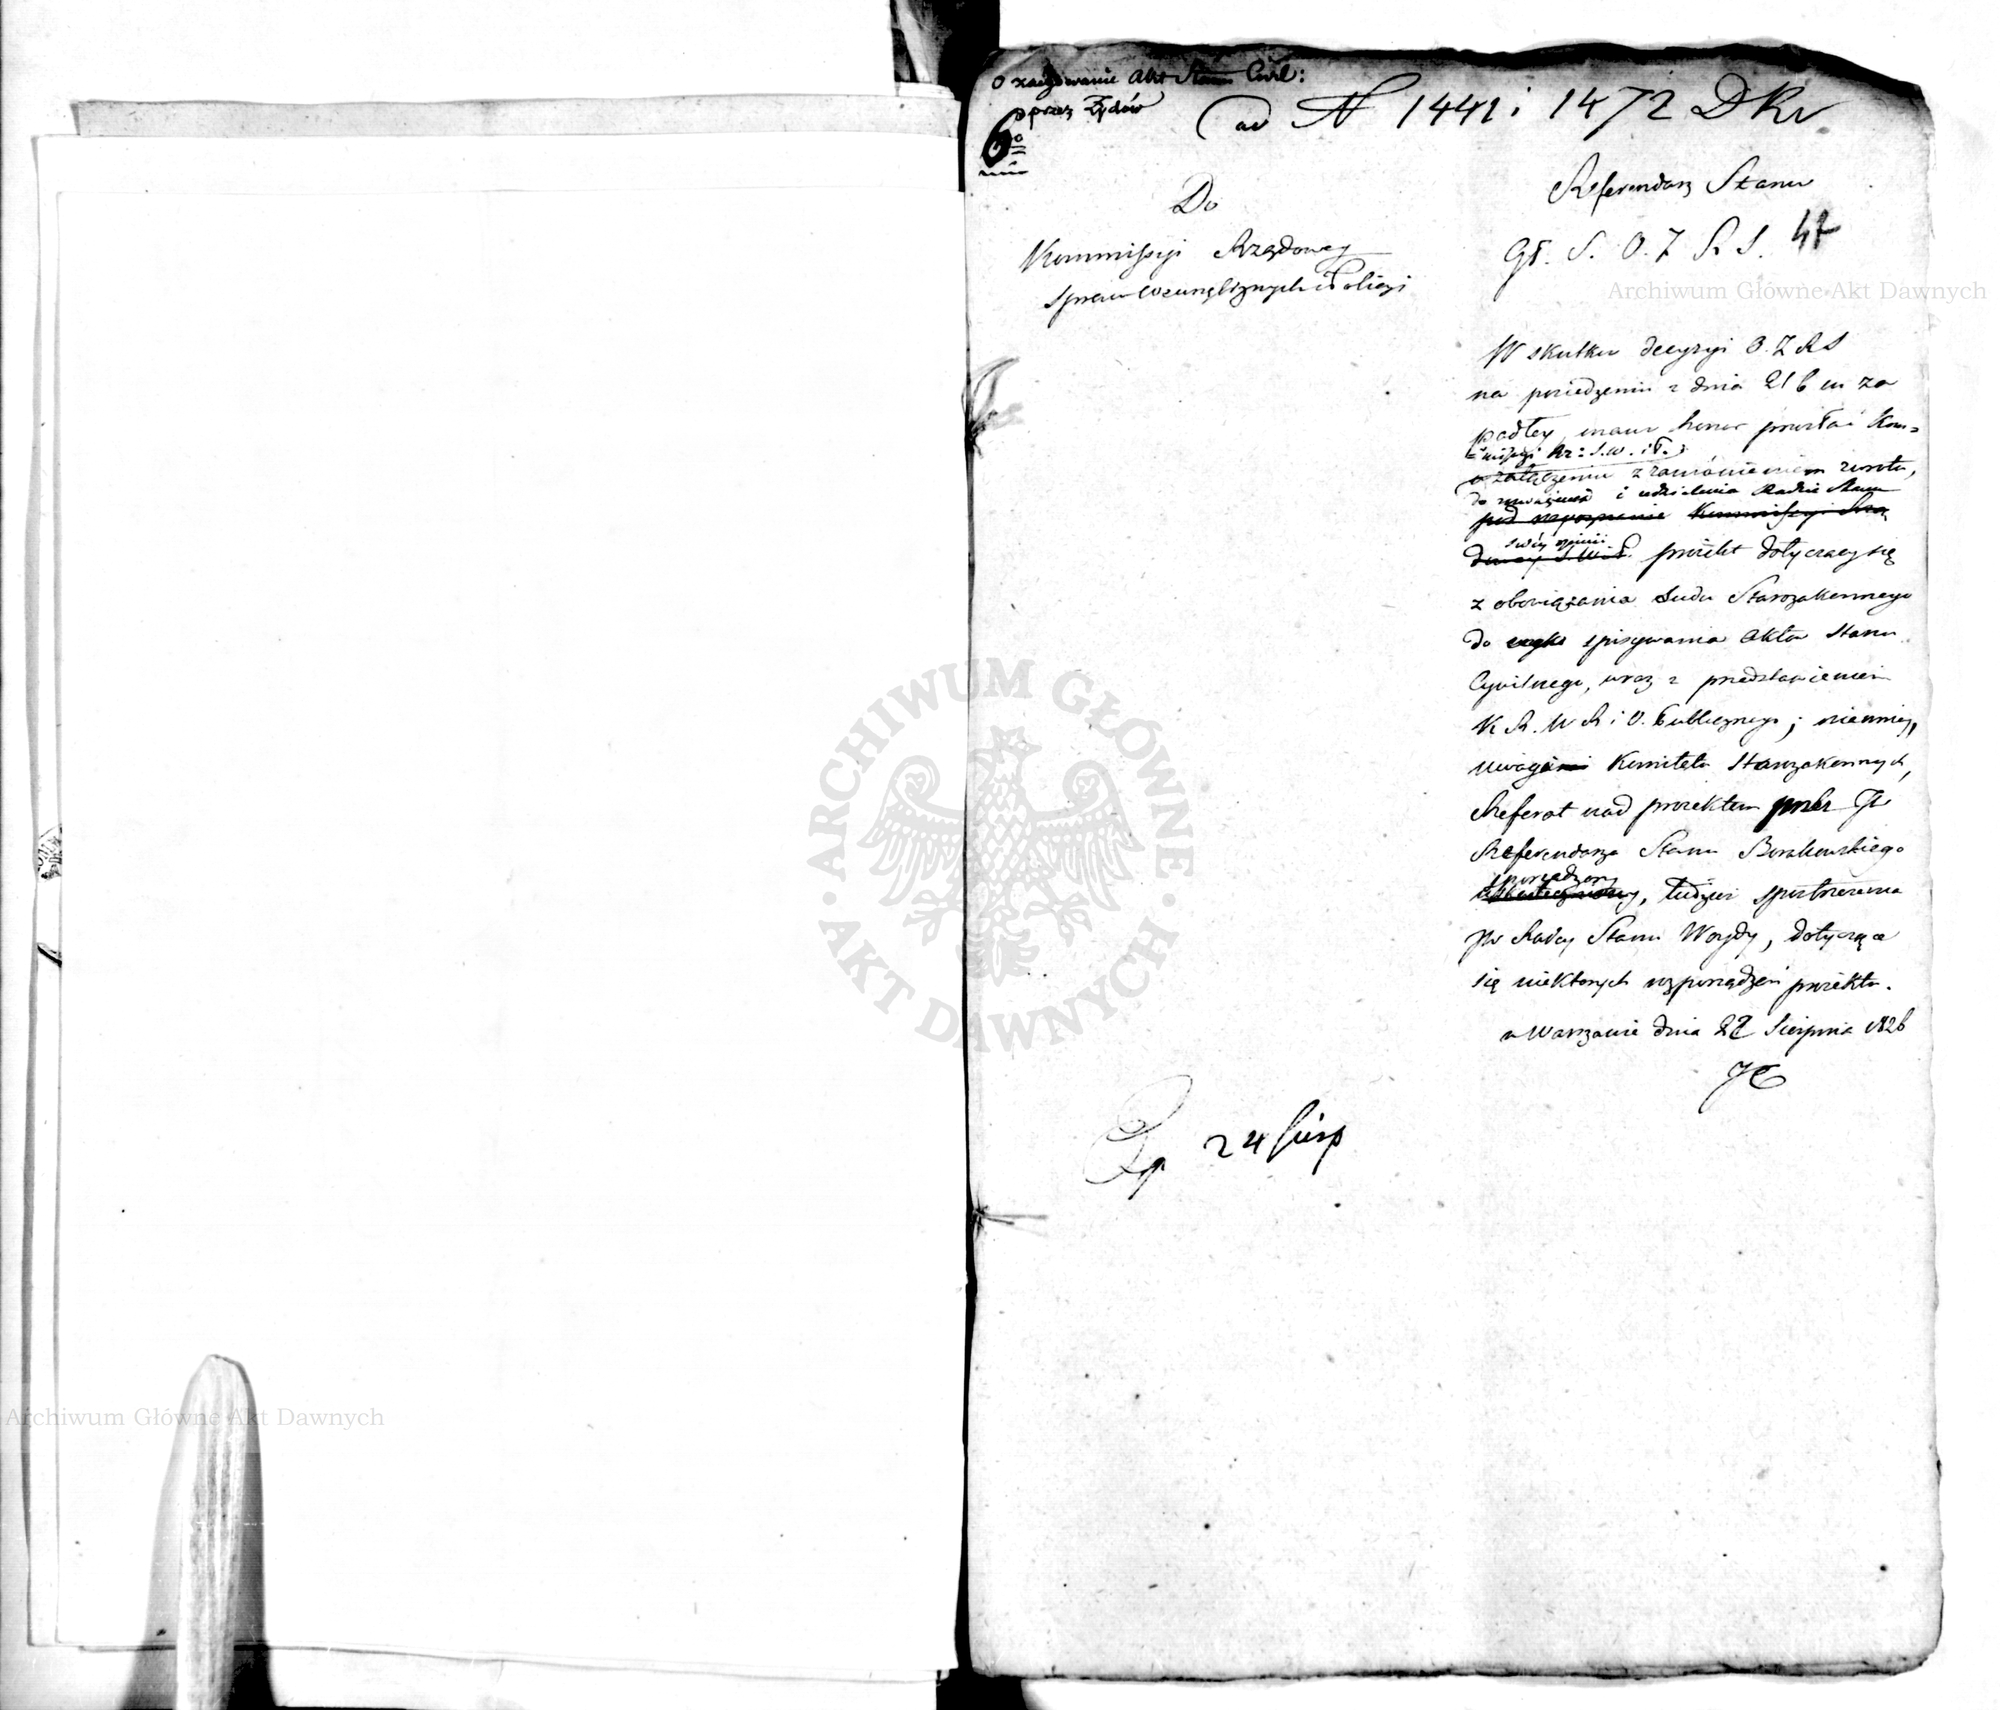 O zapisywanie Akt Stanu Cywil:
przez Żydów
ad N 1441 i 1472 DKr
6
Do
Kommissyi Rządowey
Spraw Wewnętrznych i Policyi
Referendarz Stanu
Gł. S. O. Z R S.
Archiwum Główne Akt Dawnych
W skutku decyzyi O. Z R S
na posiedzeniu z dnia 21 b m za
padłey, mam honor przesłać Kom=
=missyi Rz: S. W. i P.
w załączeniu z zamówieniem zwrotu,
do rozważenia i udzielenia Radzie Stanu
pod rozpoznanie Kommissyi Rzą
swéy opinii
dowey S. W. i P. proiekt dotyczący się
zobowiązania Ludu Starozakonnego
do spisywania Aktów Stanu
Cywilnego, wraz z przedstawieniem
K R. W R i O. Publicznego; niemniéy,
uwagami Komitetu Starozakonnych,
Referat nad proiektem przez JW
Referendarza Stanu Borakowskiego
sporządzony
uskuteczniony, tudzież spostrzeżenia
JW Radcy Stanu Woydy, dotyczące
się niektórych rozporządzeń proiektu.
w Warszawie dnia 22 Sierpnia 1826
24 Sierp
ARCHIWUM GŁÓWNE
AKT DAWNYCH
Archiwum Główne Akt Dawnych